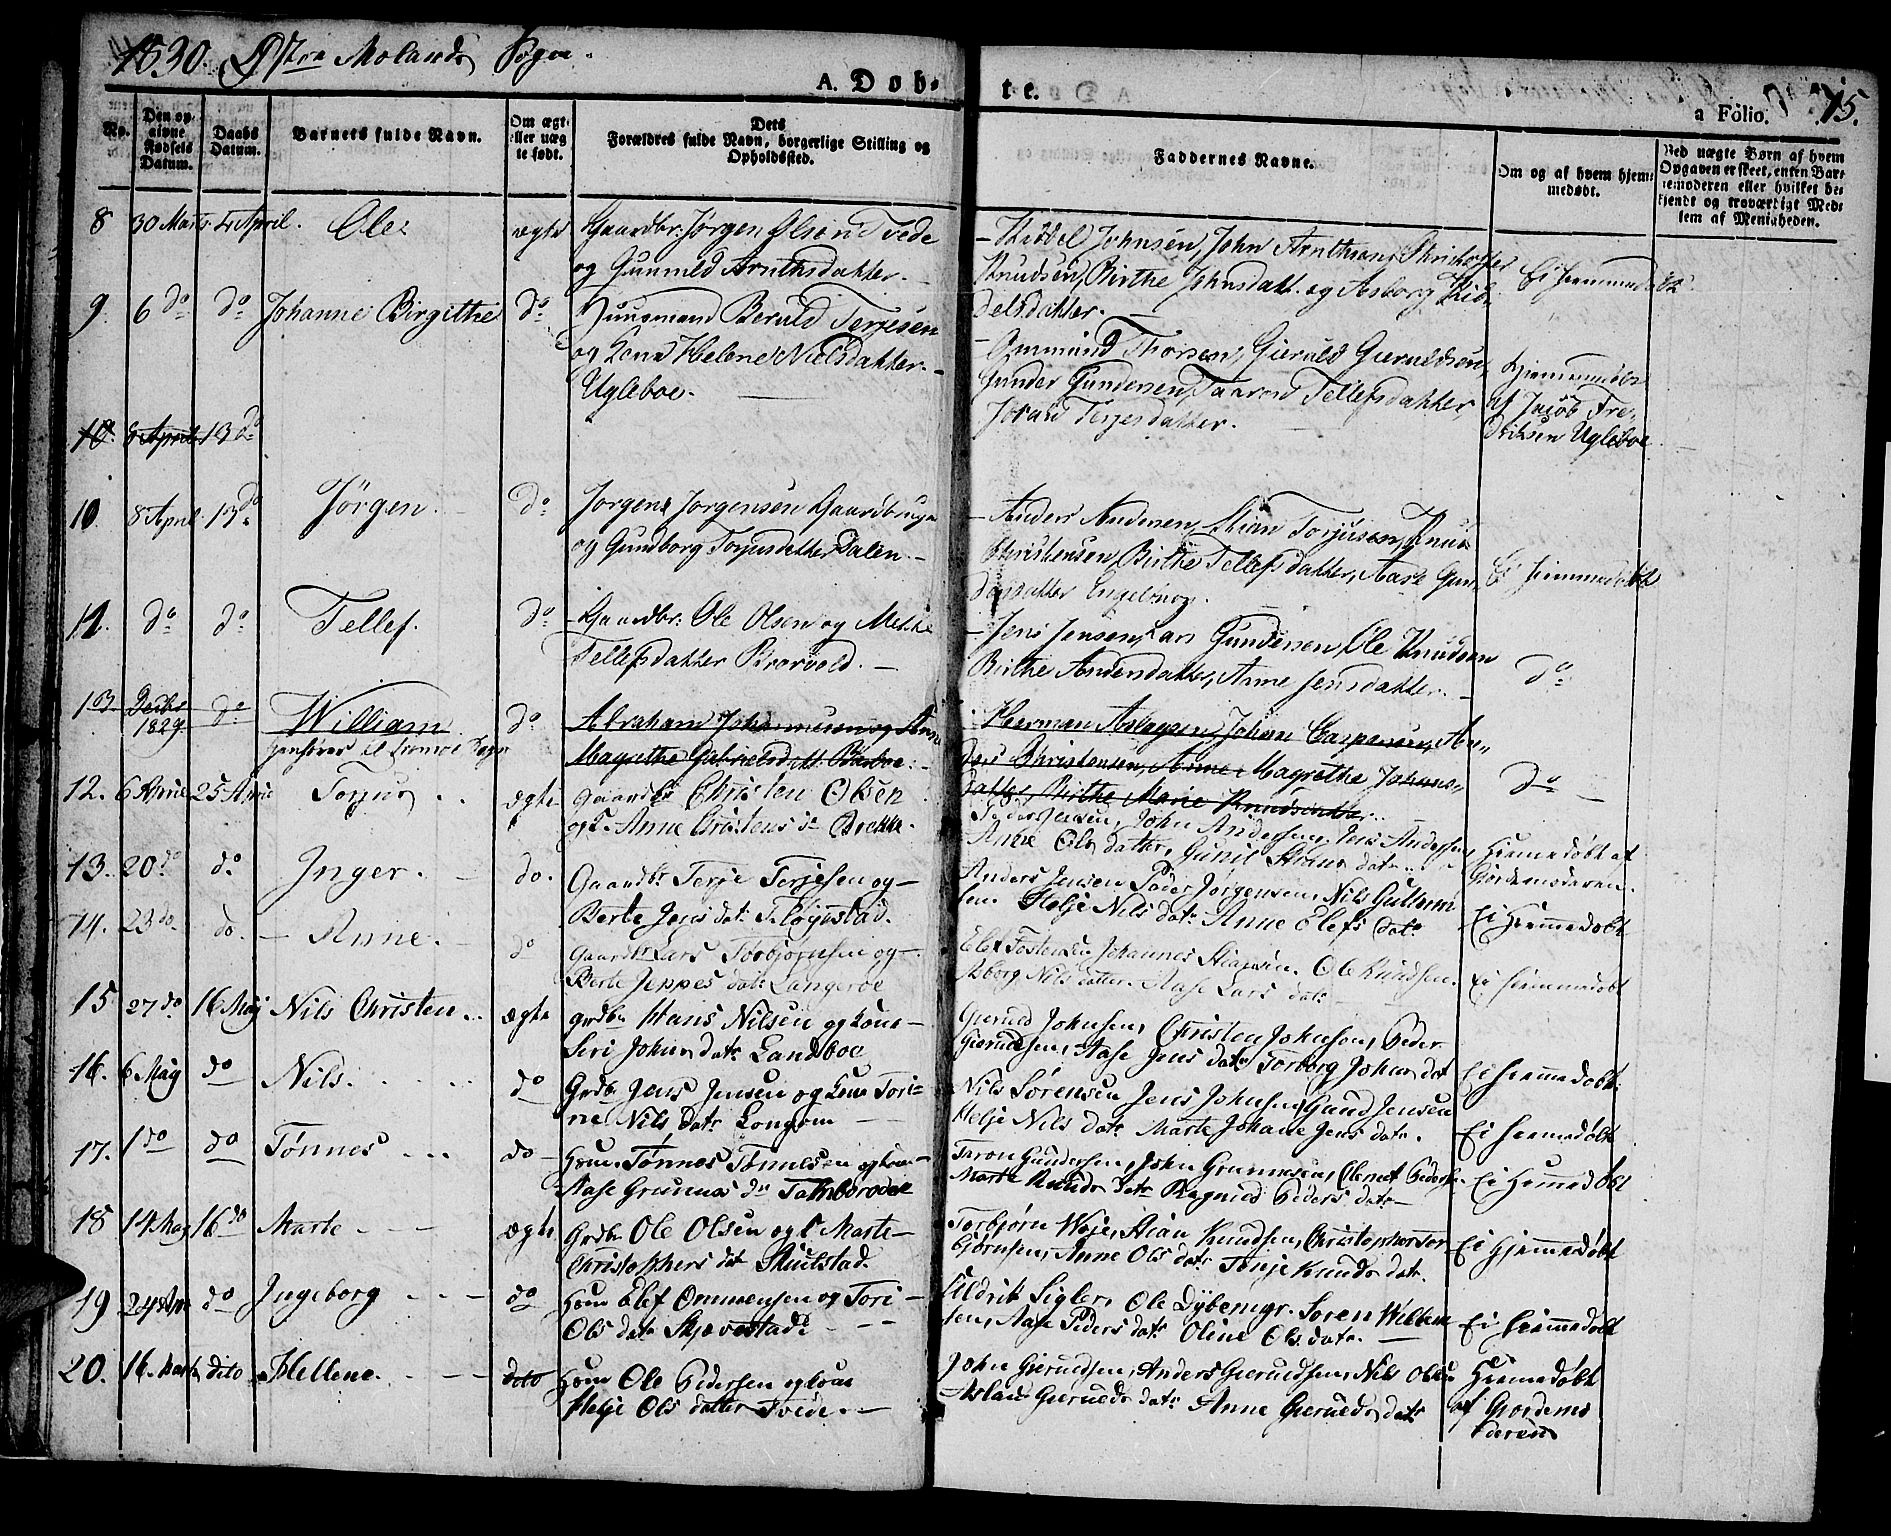 1830. Østre Molands Sogn.
A. Døb-
te.
a Folio.
75.
No.
Den op-
givne
Fødsels
Datum.
Daabs
Datum.
Barnets fulde Navn.
Om ægte
eller uæg
te født.
Dets
Forældres fulde Navn, borgerlige Stilling og
Opholdssted.
Faddernes Navne.
Om og af hvem hjem-
medøbt.
Ved uægte Børn af hvem
Opgaven er skeet, enten Bar-
nemoderen eller hvilket be-
kjendt og troværdigt Med-
lem af Menigheden.
8 30 Marts 4 April. Ole. ægte Gaardbr: Jørgen Olsen Tvede
og Gunnild Arnthsdatter.
Kiddel Johnsen, John Arnthsen,
Knudsen, Birthe Johnsdatt. og Asborg Kid-
delsdatter.
Ei hjemmedøbt
9. 6 do do Johanne Birgithe do Huusmand Beruld Terjesen
og Kone Helene Nielsdatter
Ugleboe.
Ommund Thorsen, Gieruld Gieruldsen
Gunder Gundersen, Taarand Tellefsdatter,
Joran Terjesdatter.
Hjemmedøbt
af Jacob Fre-
driksen Ugleboe
10. 8 April 13 do
10. 8 April 13 do Jørgen. do Jørgen Jørgensen Gaardbruger
og Gundborg Torjusdatter Dalen.
Anders Andersen, Stian Torjusen, Knud
Christensen, Birthe Tellefsdatter, Aase Gun-
dersdatter Engelbug.
Ei hjemmedøbt
11. do do Tellef. do Gaardbr: Ole Olsen og Mekke
Tellefsdatter Brovold.
Jens Jensen, Lars Gundersen, Ole Knudsen
Birthe Andersdatter, Anne Jensdatter.
do
Decbr
1829 do William do Abraham Johannesen og Anne
Magrethe Gabrielsdatt. Barboe.
henføres til Tromøe Sogn
Herman Aslagsen, Johan Caspersen, An-
ders Christensen, Anne Magrethe Johans-
datter, Birthe Marie Knudsdatter.
do
12. 6 April 25 April Torjus ægte Gaardbr Christen Olsen
og K. Anne Christens dr Brekke.
Peder Jensen, John Andersen, Jens Andersen,
Anne Ols datter, Gunil Stians datr
Hiemedøbt af
Giordemoderen.
13. 20 do do Inger. do. Gaardbr Terje Terjesen og
Berte Jens datr Fløgstad.
Anders Jensen Peder Jørgensen, Nils Guttorm
sen. Helje Nils datr Anne Elefs datr
Ei Hiemmedøbt
14. 23 do. do. Anne. do Gaardbr Lars Torbjørnsen og
Berte Jeppes datr Langeroe
Elef Tostensen Johannes Stiansen. Ole Knudsen.
Asborg Nils datter. Aase Lars datr
Ei hiemmedøbt
15 27 do 16 Maj Nils Christen ægte grdbr Hans Nilsen og kone
Siri Johns datr Landboe
Gieruld Johnsen, Christen Johnsen, Peder
Gieruldsen, Aase Jens datr Torborg Johns dat
Ei hiemmedøbt.
16. 6 Maj do Nils. do Grdbr Jens Jensen og kone Tori-
ne Nils datr Longom
Nils Sørensen Jens Johnsen, Gund Jensen
Helje Nils datr Marte Johane Jens datr.
Ei hiemmedøbt
17. 1 do do Tønnes do Hmd. Tønnes Tønnesen og kone
Aase Grunnes dr
Taron Gundersen, John Grunnesen, Clemet Pedersen.
Marte Knuds datr Ragnild Peders datr
Ei Hiemmedøbt
18 14 Maj 16 do Marte ægte Grdbr Ole Olsen og K Marte
Christophers dat Skiulstad.
Torbjørn Woje, Stian Knudsen, Christopher Tor-
biørnsen, Anne Ols datr Terje Knuds datr.
Ei Hjemmedøbt
19 24 Apr do Ingeborg do Hmd Elef Ommensen og Tori
Ols datr Skjævestad.
Eldrik Sigler, Ole Dybemyr. Soren Willem
sen, Aase Peders datr Oline Ols datr.
Ei hiemmedøbt
20. 16. Marts dito Hellene. dito Hmd Ole Pedersen og kone
Helje Ols datter Tvede.
John Gieruldsen, Anders Gieruldsen, Nils Olsen
Aslau Gierulds datr Anne Gierulds datr
Hiemedøbt
af Giordemo
deren